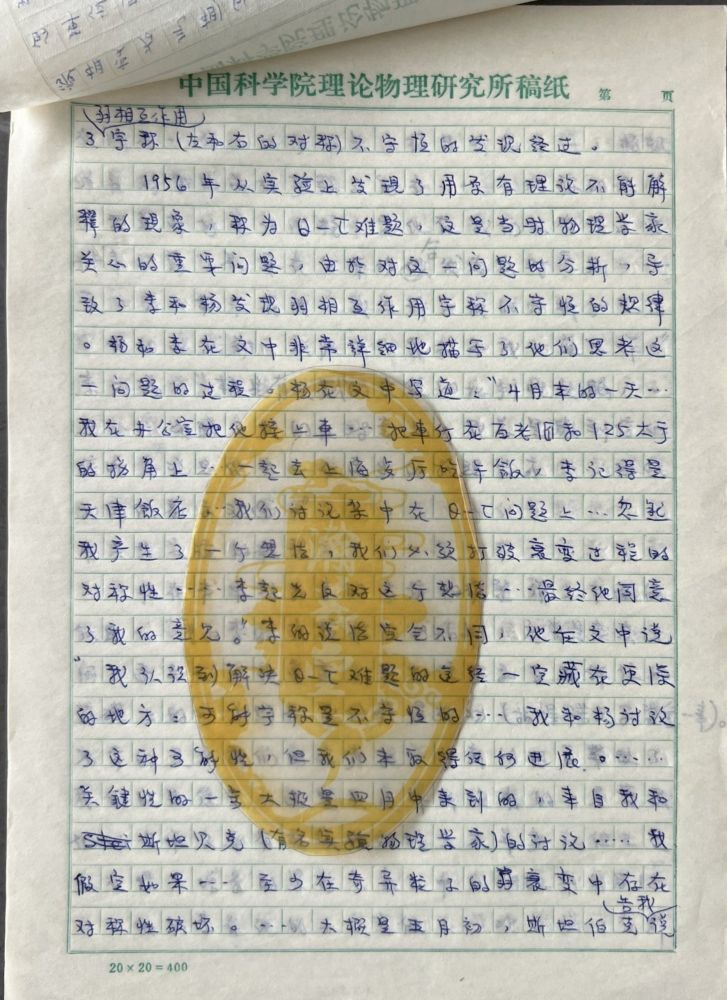 中国科学院理论物理研究所稿纸 第 页
弱相互作用
3 宇称(左和右的对称)不守恒的发现经过。
1956年从实验上发现了用原有理论不能解
释的现象,称为θ-τ难题,这是当时物理学家
关心的重要问题,由於对这一问题的分析,导
致了李和杨发现弱相互作用宇称不守恒的规律
。杨和李在文中非常详细地描写了他们思考这
一问题的过程。杨在文中写道:"4月末的一天…
我在办公室把他接上車…把車停在百老匯和125大于
的拐角上…一起去上海餐厅吃午飯,李记得是
天津飯店…我们讨论集中在θ-τ问题上…忽然
我产生了一个想法,我们必须打破衰变过程的
对称性……李起先反对这个想法…最终他同意
了我的意见。"李的说法完全不同,他在文中说
"我认识到解决θ-τ难题的途径一定藏在更深
的地方。可能宇称是不守恒的…我和杨讨论
了这种可能性,但我们未取得任何进展。……
关键性的一步大概是四月中来到的,来自我和
斯坦贝克(有名实验物理学家)的讨论……我
假定如果…至少在奇异粒子的衰变中存在
告我
对称性破坏。…大概是五月初,斯坦伯克说
20×20=400